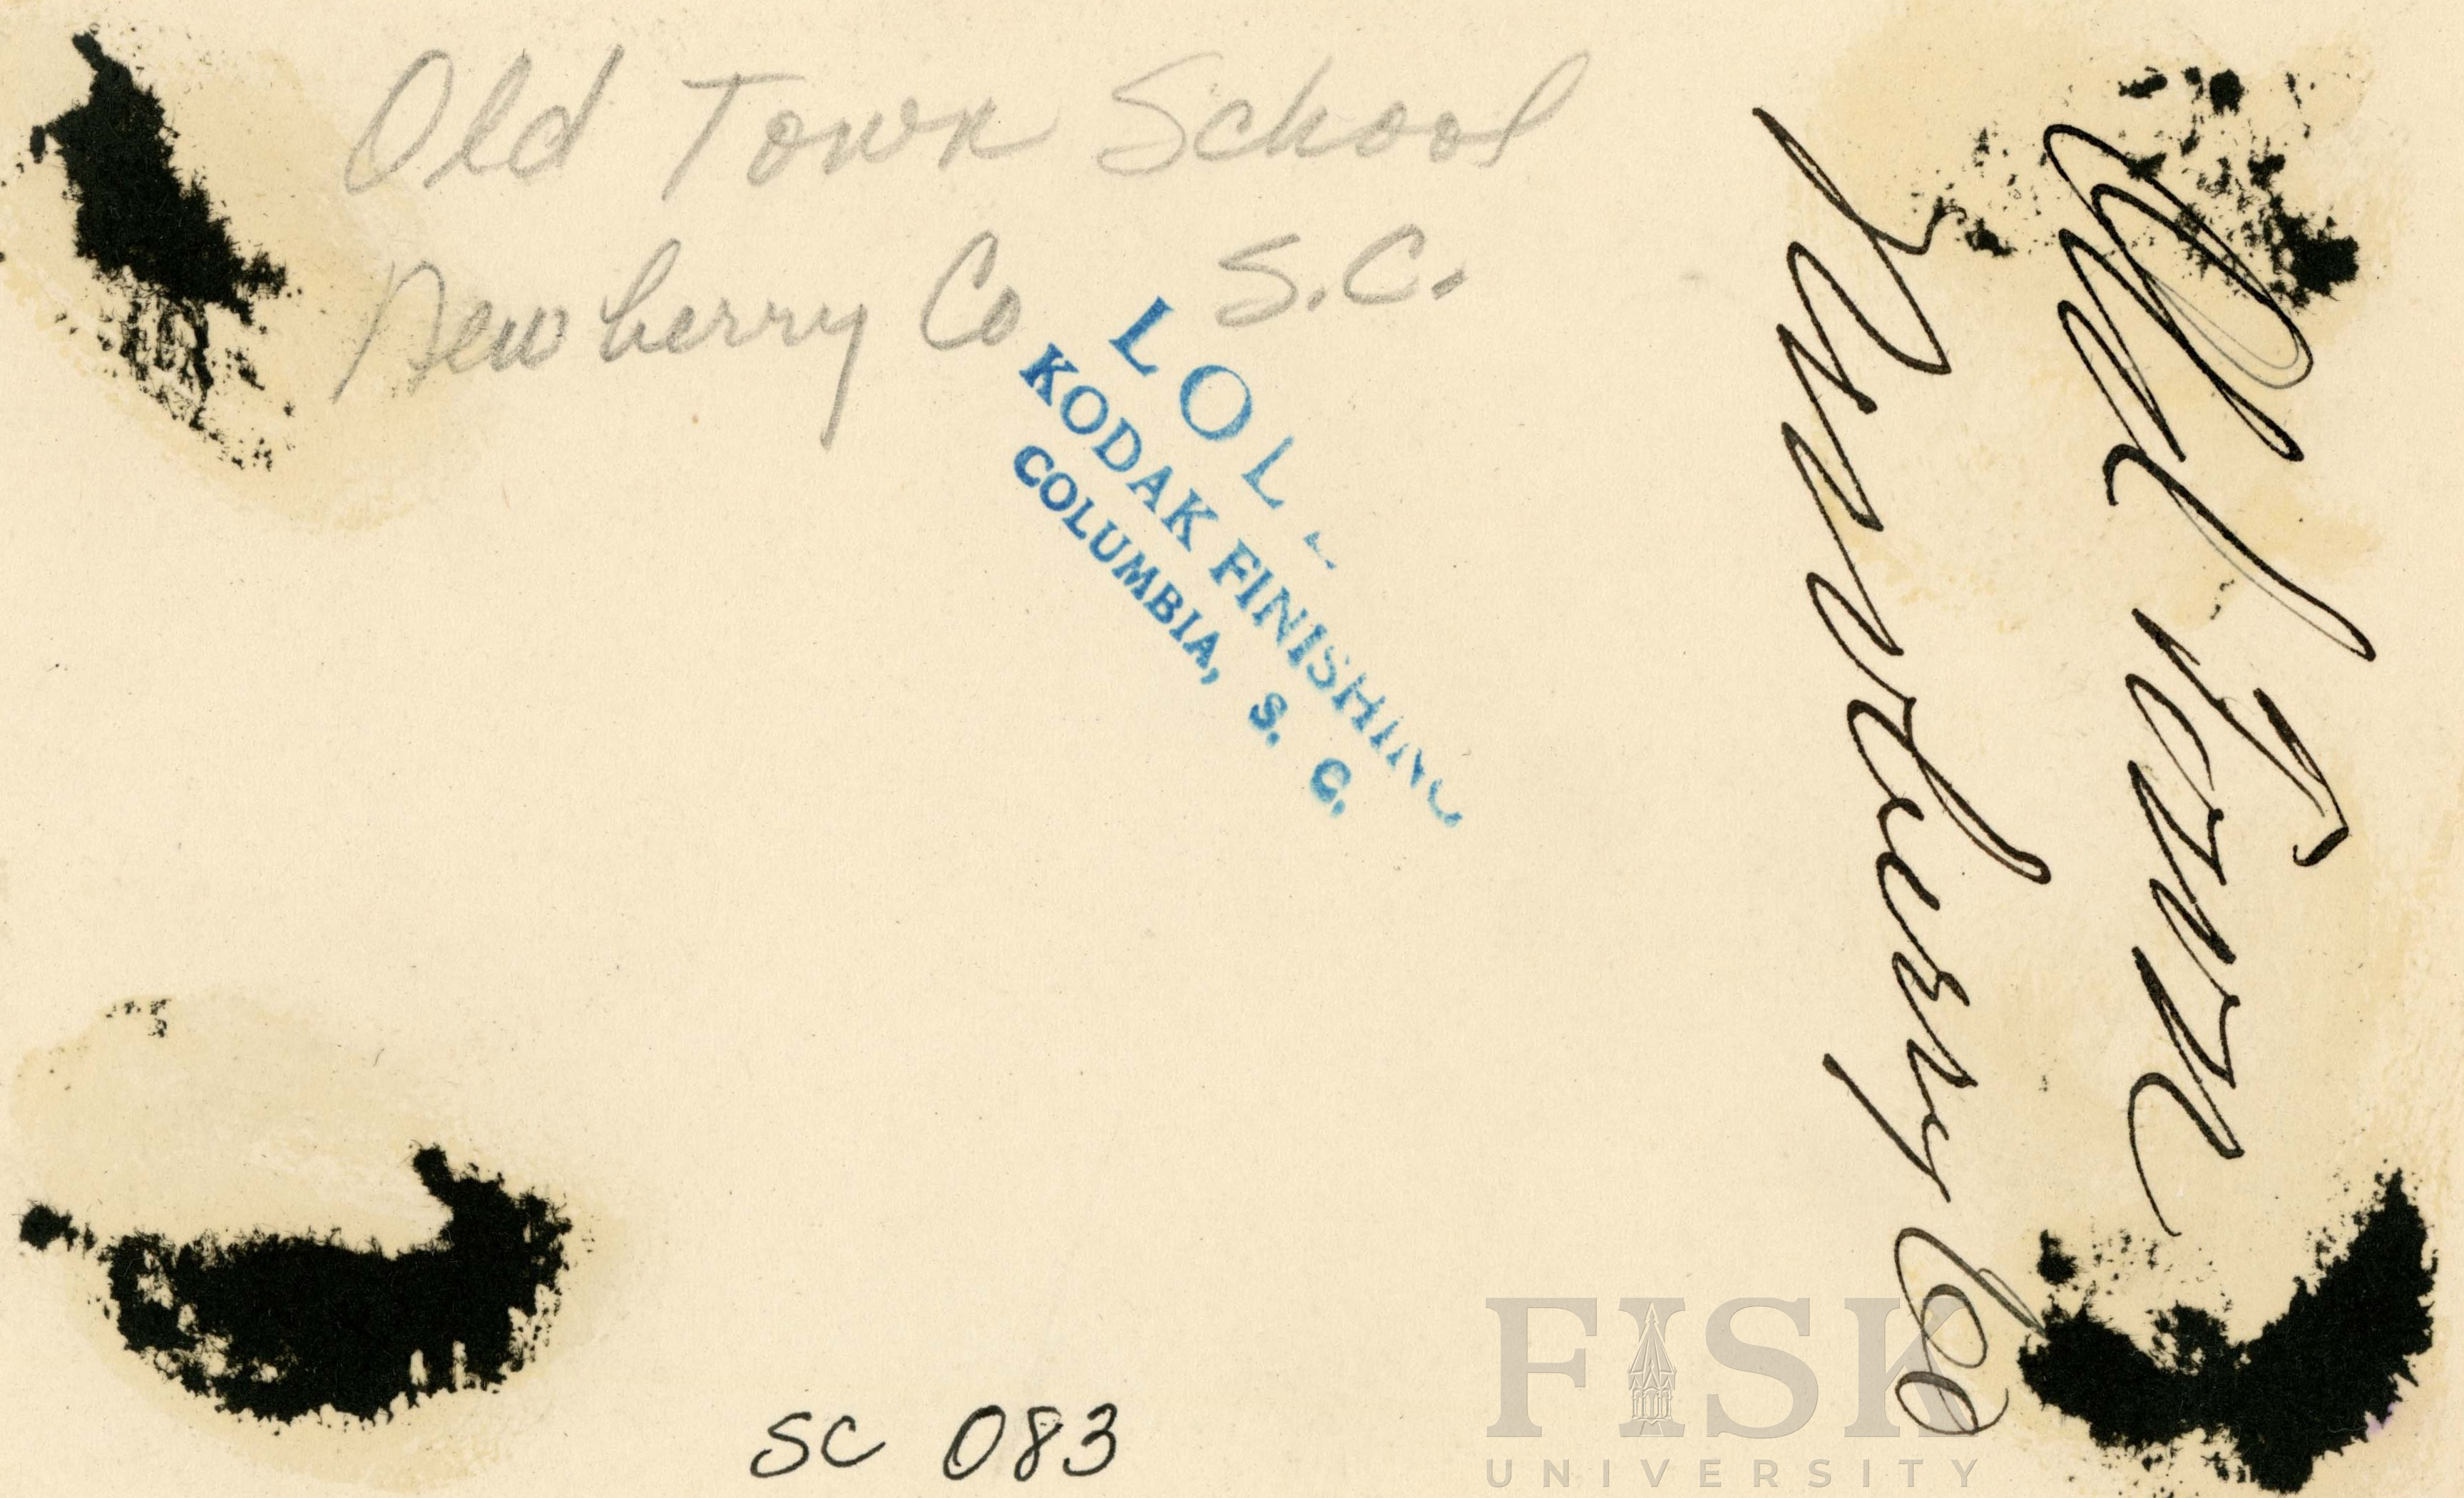 Old Town School
Newberry Co S.C.
LOL
KODAK FINISHING
COLUMBIA, S. C.
Old Town
Newberry Co
SC 083
FISK
UNIVERSITY